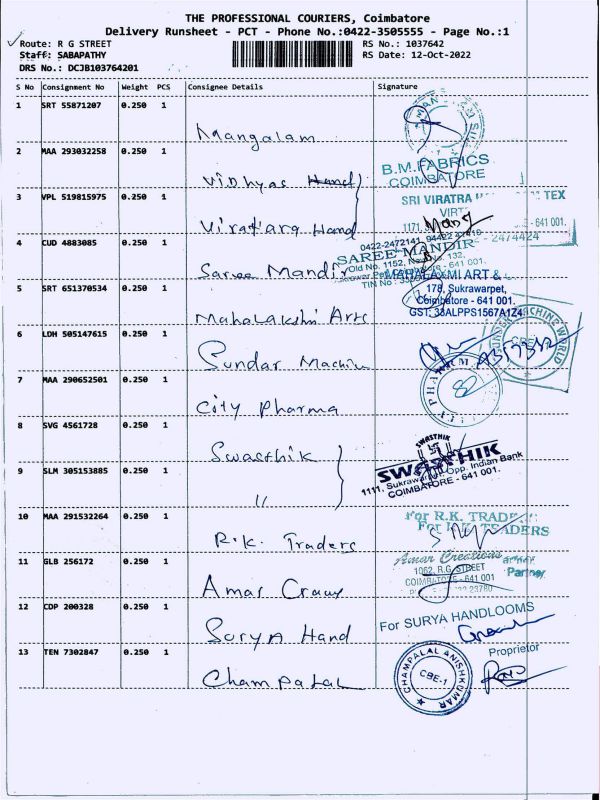 THE PROFESSIONAL COURIERS, Coimbatore
Delivery Runsheet - PCT - Phone No.:0422-3505555 - Page No.:1
Route: R G STREET RS No.: 1037642
Staff: SABAPATHY RS Date: 12-Oct-2022
DRS No.: DCJB103764201
S No Consignment No Weight PCS Consignee Details Signature
1 SRT 55871207 0.250 1
Mangalam
2 MAA 293032258 0.250 1
B.M.FABRICS
COIMBATORE
Vidhyas Hand
3 VPL 519815975 0.250 1
SRI VIRATRA TEX
VIRT
1171, - 641 001.
Viratara Hand
4 CUD 4883085 0.250 1
0422-2472141, 94422 - 2474424
SAREE MANDIR
Old No. 1152, New No. 132,
- 641 001.
TIN No :
Saree Mandir
MAHALAXMI ART &
5 SRT 651370534 0.250 1
178, Sukrawarpet,
Coimbatore - 641 001.
GST: 33ALPPS1567A1Z4
Mahalakshi Arts
6 LDH 505147615 0.250 1
SUNDER MACHINE WORLD
CBE
Sundar Machin
7 MAA 290652501 0.250 1
CITY PHARM
82
City Pharma
8 SVG 4561728 0.250 1
Swasthik
SWASTHIK
SWASTHIK
9 SLM 305153885 0.250 1
1111, Sukrawarpet, Opp. Indian Bank
COIMBATORE - 641 001.
"
10 MAA 291532264 0.250 1
For R.K. TRADERS
For R.K. TRADERS
R.K. Traders
11 GLB 256172 0.250 1
Amar Creations
Partner
1062, R.G. STREET
COIMBATORE - 641 001
23780
Amar Creay
12 CDP 200328 0.250 1
For SURYA HANDLOOMS
Surya Hand
Proprietor
13 TEN 7302847 0.250 1
CHAMPALAL ANISHKUMAR
CBE-1
Champalal